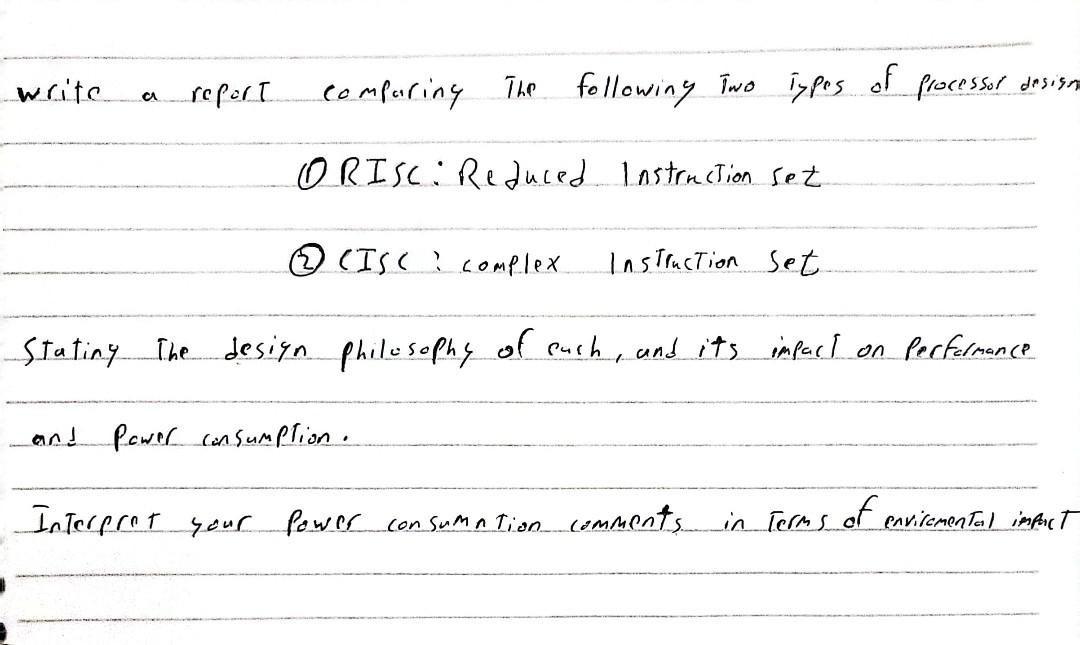 write a report comparing The following Two Types of processor design
① RISC: Reduced Instruction set
② CISC: complex Instruction set
Stating The design philosophy of each, and its impact on Performance
and Power consumption.
Interpret your Power consumntion comments in Terms of enviremental impact